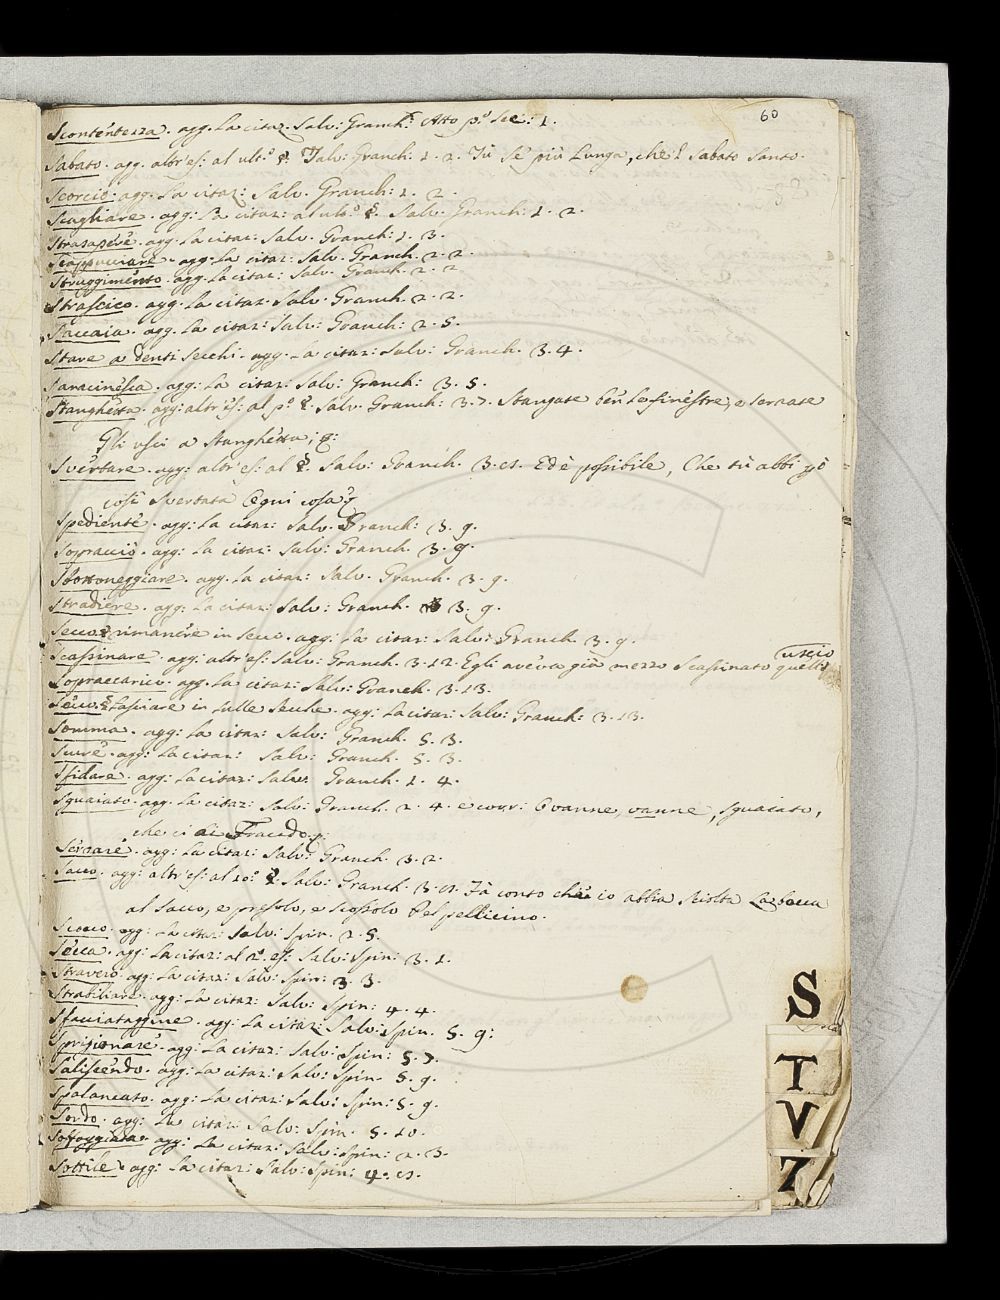 60
Scontentezza. agg. La citaz. Salv: Granch: Atto p.º Sce: 1.
Sabato. agg. altr'es: al ult.º §. Salv: Granch: 1. 2. Tu se' più lunga, che'l Sabato Santo.
Scorcio. agg. La citaz: Salv. Granch: 1. 2.
Scagliare. agg: La citaz: al ult.º §. Salv. Granch: 1. 2.
agg. La citaz: Salv. Granch: 1. 3.
Scappucciare. agg. La citaz: Salv. Granch. 2. 2.
Struggimento. agg. La citaz: Salv. Granch. 2. 2.
Strascico. agg. La citaz. Salv. Granch. 2. 2.
Saccaia. agg. La citaz: Salv: Granch: 2. 5.
Stare a denti secchi. agg. La citaz: Salv: Granch. 3. 4.
Saracinesca. agg: La citaz: Salv: Granch: 3. 5.
Stanghetta. agg: altr'es: al p.º §. Salv. Granch: 3. 7. Stangate ben le finestre, e serrate
Gli usci a stanghetta, &:
Svertare. agg: altr'es: al §. Salv: Granch. 3. Ed è possibile, Che tu abbi
così svertata Ogni cosa?
Spediente. agg: La citaz: Salv. Granch: 3. 9.
Sopracciò. agg: La citaz: Salv: Granch. 3. 9.
Sbottoneggiare. agg. La citaz: Salv. Granch. 3. 9.
Stradiere. agg: La citaz: Salv: Granch. 3. 9.
Secco § rimanere in secco. agg: La citaz: Salv: Granch. 3. 9.
Scassinare. agg: altr'es: Salv: Granch. 3. 12. Egli aveva già mezzo scassinato quell'
uscio
Sopraccarico. agg. La citaz: Salv: Granch. 3. 13.
Secco. § Lasciare in sulle secche. agg: La citaz: Salv: Granch: 3. 13.
Somma. agg: La citaz: Salv: Granch. 5. 3.
agg: La citaz: Salv: Granch. 5. 3.
Sfidare. agg: La citaz: Salv: Granch. 1. 4.
Sguaiato. agg. La citaz: Salv: Granch. 2. 4. e corr: O vanne, vanne, sguaiato,
che ci ai Fracido.
Serrare. agg: La citaz: Salv: Granch. 3. 2.
Sacco. agg: altr'es: al 10.º §. Salv: Granch. 3. Fa conto che io abbia sciolta La bocca
al sacco, e presolo, e scossolo Pel pellicino.
Scocco. agg: La citaz: Salv: Spin. 2. 5.
Secca. agg: La citaz: al 2.º es: Salv: Spin: 3. 1.
agg: La citaz: Salv: Spin: 3. 3.
Strabiliare. agg: La citaz: Salv: Spin: 4. 4.
Sfacciataggine. agg: La citaz: Salv: Spin. 5. 9:
Sprigionare. agg: La citaz: Salv: Spin: 5. 7.
Saliscendo. agg: La citaz: Salv: Spin. 5. 9.
Spalancato. agg: La citaz: Salv: Spin: 5. 9.
Sordo. agg: La citaz: Salv: Spin. 5. 10.
agg: La citaz: Salv: Spin: 2. 3.
Sottile. agg: La citaz: Salv: Spin: 4.
S
T
V
Z